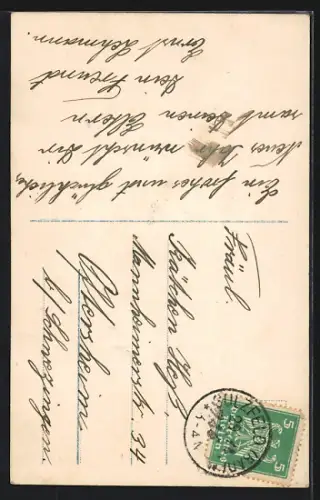 Ein frohes und glückliches
Neues Jahr wünscht Dir
samt Deinen Eltern
Dein Freund
Ernst Lehmann.
Fräul.
Käthchen
Mannheimerstr. 34
Oftersheim
b/ Schwezingen.
5 5